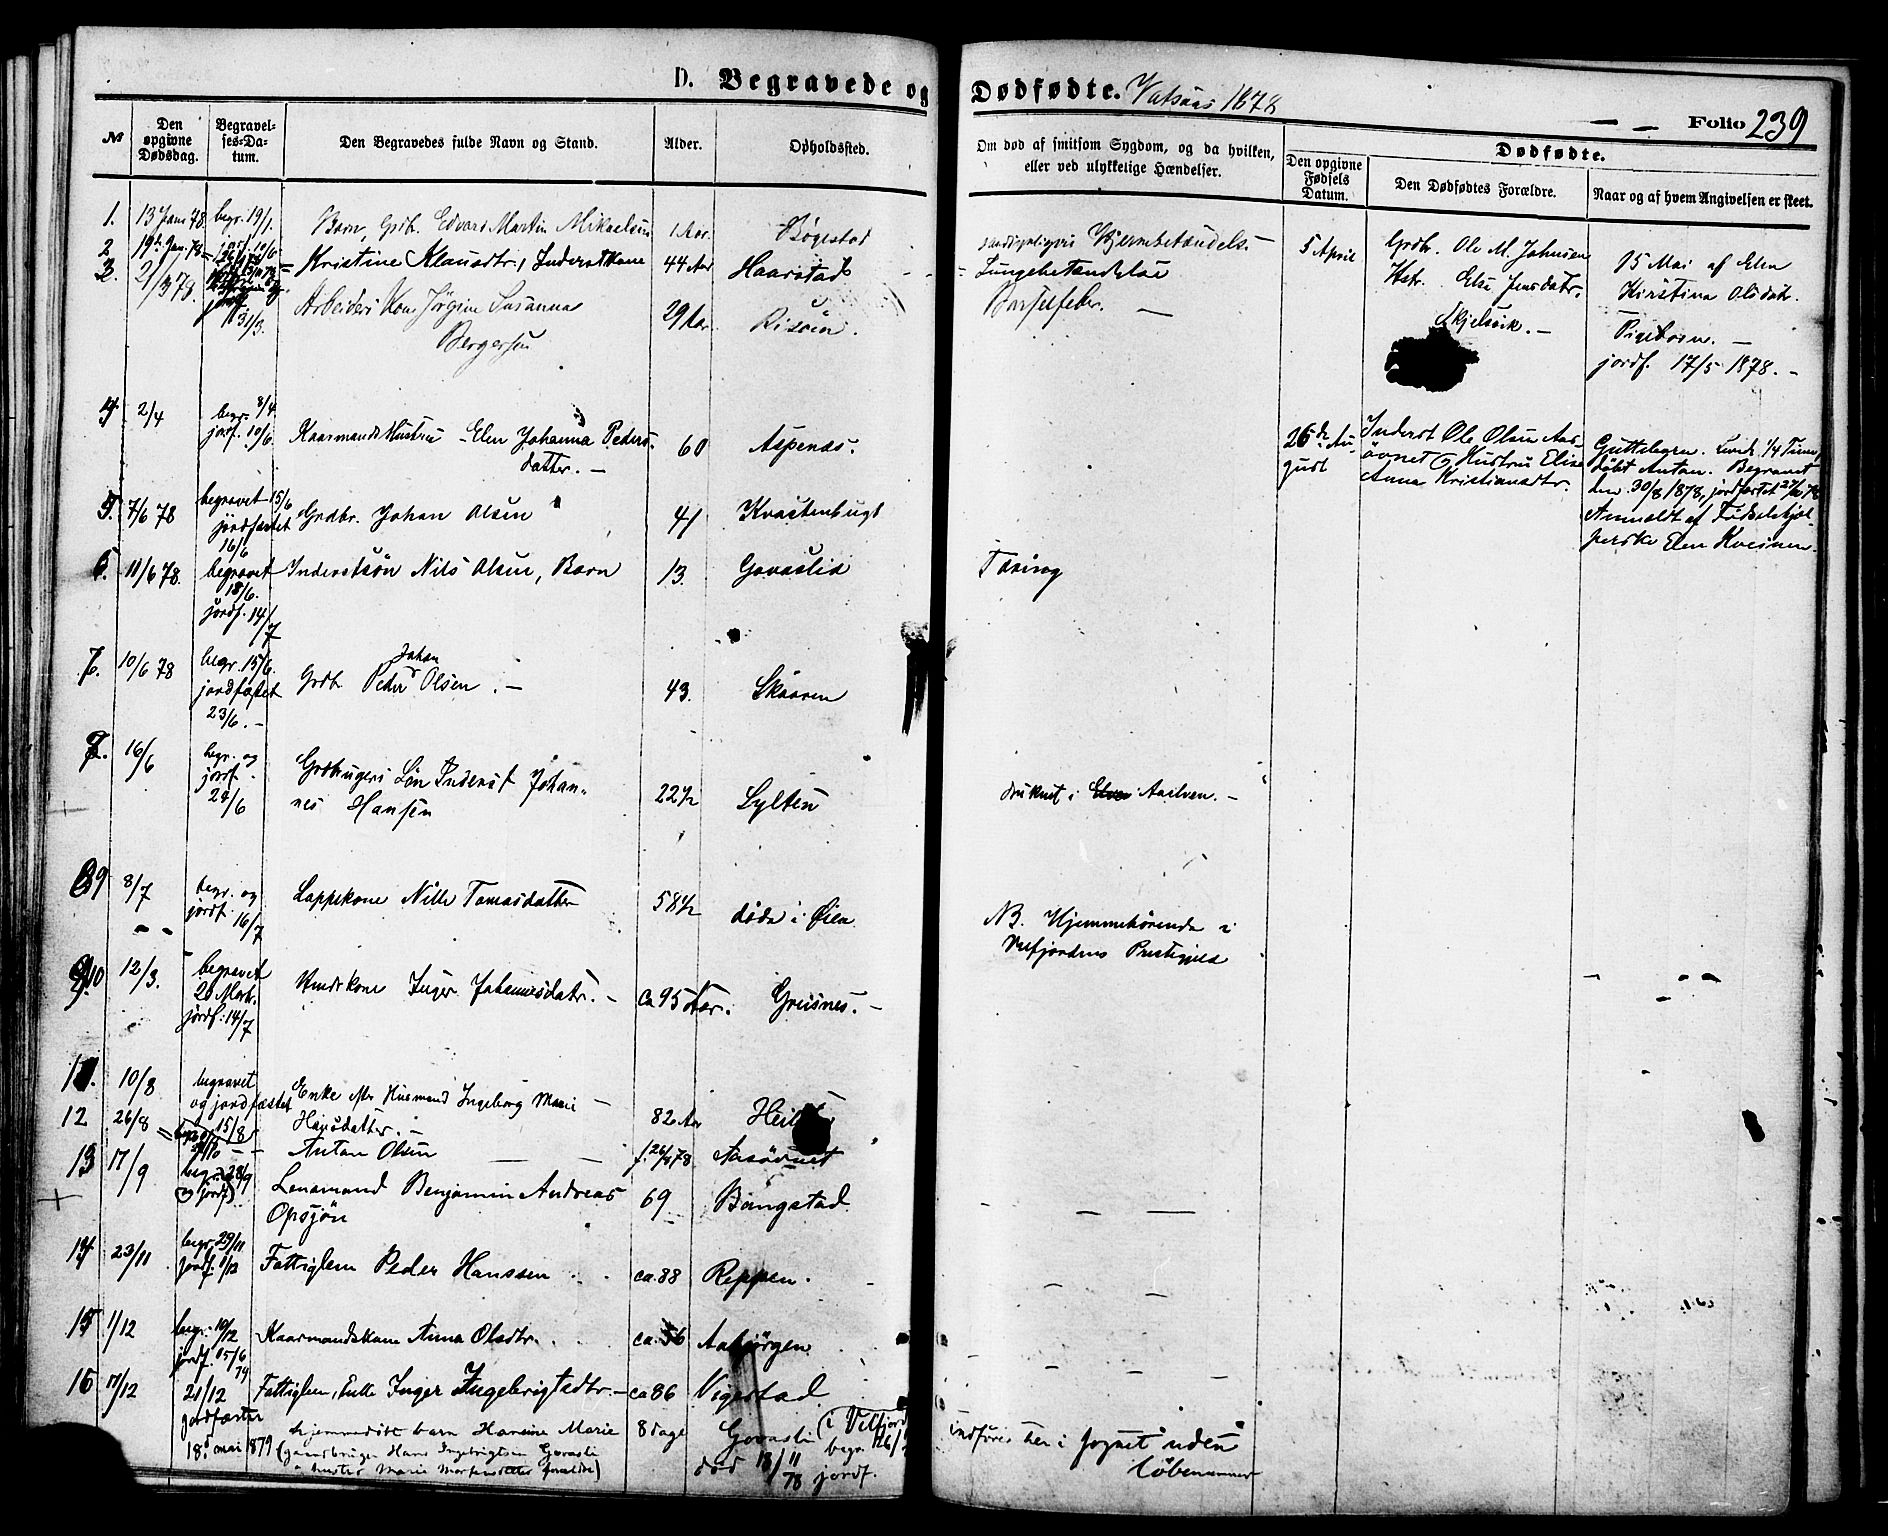 D. Begravede og Dødfødte. Vatsaas 1878
Folio 239
№
Den opgivne Dødsdag.
Begravelses-Datum.
Den Begravedes fulde Navn og Stand.
Alder.
Opholdssted.
Om død af smitsom Sygdom, og da hvilken, eller ved ulykkelige Hændelser.
Dødfødte.
Den opgivne Fødsels Datum.
Den Dødfødtes Forældre.
Naar og af hvem Angivelsen er skeet.
1. 13 Jan. 78. begr. 19/1. Barn, Grdb. Edvard Martin Mikaelsen 1 Aar. Bøgestad
2 19 Jan. 78 Kristine Klausdtr., Inderstkone 44 Aar Haarstad Lungebetændelse
3. 2/3 78. 31/3. Arbeiders Kone Jørgine Susanna
Bergersen 29 Aar Risøen. Barselfeber. —
5 April Grdbr. Ole M. Johnsen
Hstr. Else Jensdatr.
Skjelsvik. —
15 Mai af Elen
Kirstina Olsdatr.
Pigebarn. —
jordf. 17/5 1878. —
4 2/4 begr. 8/4
jorf. 10/6. Kaarmands Hustru Elen Johanna Peders-
datter. — 60 Aspenas.
26de Au-
gust
Inderst Ole Olsen Aas-
øvnet og Hustru Elise
Anna Kristiansdtr.
Guttebarn. Levede 1/4 Time,
døbt Antan. Begravet
den 30/8 1878, jordfæstet
Anmeldt af Fødselshjæl-
perske Elen
5. 7/6 78 begravet 15/6
jordfæstet
16/6 Grdbr. Johan Olsen 41 Kvastenbugt
6. 11/6 78. begravet
18/6.
jordf. 14/7 Inderstsøn Nils Olsen, Barn 13. Govaslid Tæring
7. 10/6 78 begr. 15/6.
jordfæstet
23/6. — Grdb. Peder Johan Olsen. — 43. Skaaren
16/6 begr. og
jordf.
24/6 Grdbrugers Søn Inderst Johan-
nes Hansen 22½ Sylten druknet i Elven Aaelven. —
9 8/7 begr. og
jordf.
16/7 Lappekone Nille Tomasdatter 58½ døde i Øien NB. Hjemmehørende i
Vefsjordens Prestegjeld
10 12/3. begravet
20 Marts.
jordf. 14/7 Inger Johannesdatr. — ca 95 Aar. Greisnes. —
11. 10/8 begravet
og jordfæstet
15/8 Enke efter Husmand Ingeborg Marie
Hansdatter. — 82 Aar
12 26/8 Antan Olsen f. 26/8 78 Aasøvnet
13 17/9 begr. 28/9
og jordf. Lensmand Benjamin Andreas
Opsjøn 69 Bangstad
14 23/11 begr. 29/11
jordf. 1/12 Fattiglem Peder Hanssen ca. 88 Reppen.
15 1/12 begr. 10/12
jordf. 15/6
79 Kaarmandskone Anna Olsdtr. ca. 56 Aabjørgen
16 17/12 21/12
jordfæstet
18. mai 1879 Fattiglem, Enke Inger Ingebrigtsdtr. — ca 86 Vigestad
hjemmedøbt barn Hansine Marie
(gaardbruger Hans Ingebrigtsen Govasli
Marie Mortensdatter forældre) 8 dage Govasli (i Velfjord
død 18/11
78 jordf.
indføres her i Sognet uden
løbenummer